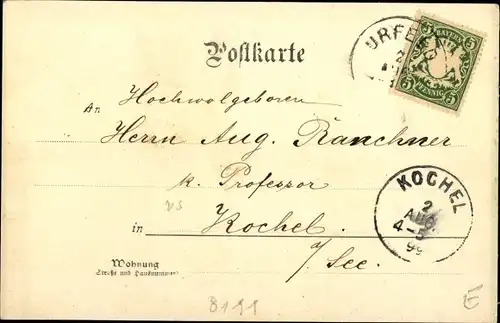 URFE
2
BAYERN
5 5
PFENNIG
Postkarte
An
Hochwolgeboren
Herrn Aug. Ranchner
k. Professor
in Kochel
a/See.
KOCHEL
2
AUG
4-5
99
Wohnung
(Straße und Hausnummer)
8199
E